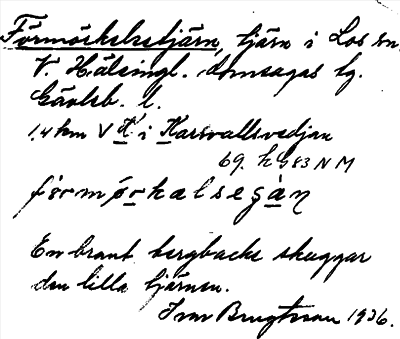 Förmörkelsetjärn, tjärn i Los sn.
V. Hälsingl. domsagas tg.
Gävleb. l.
1,4 km V K i Karsvallsvedjan
69. h 983 N M
En brant bergbacke skuggar
den lilla tjärnen.
Ivar Bengtsson 1936.